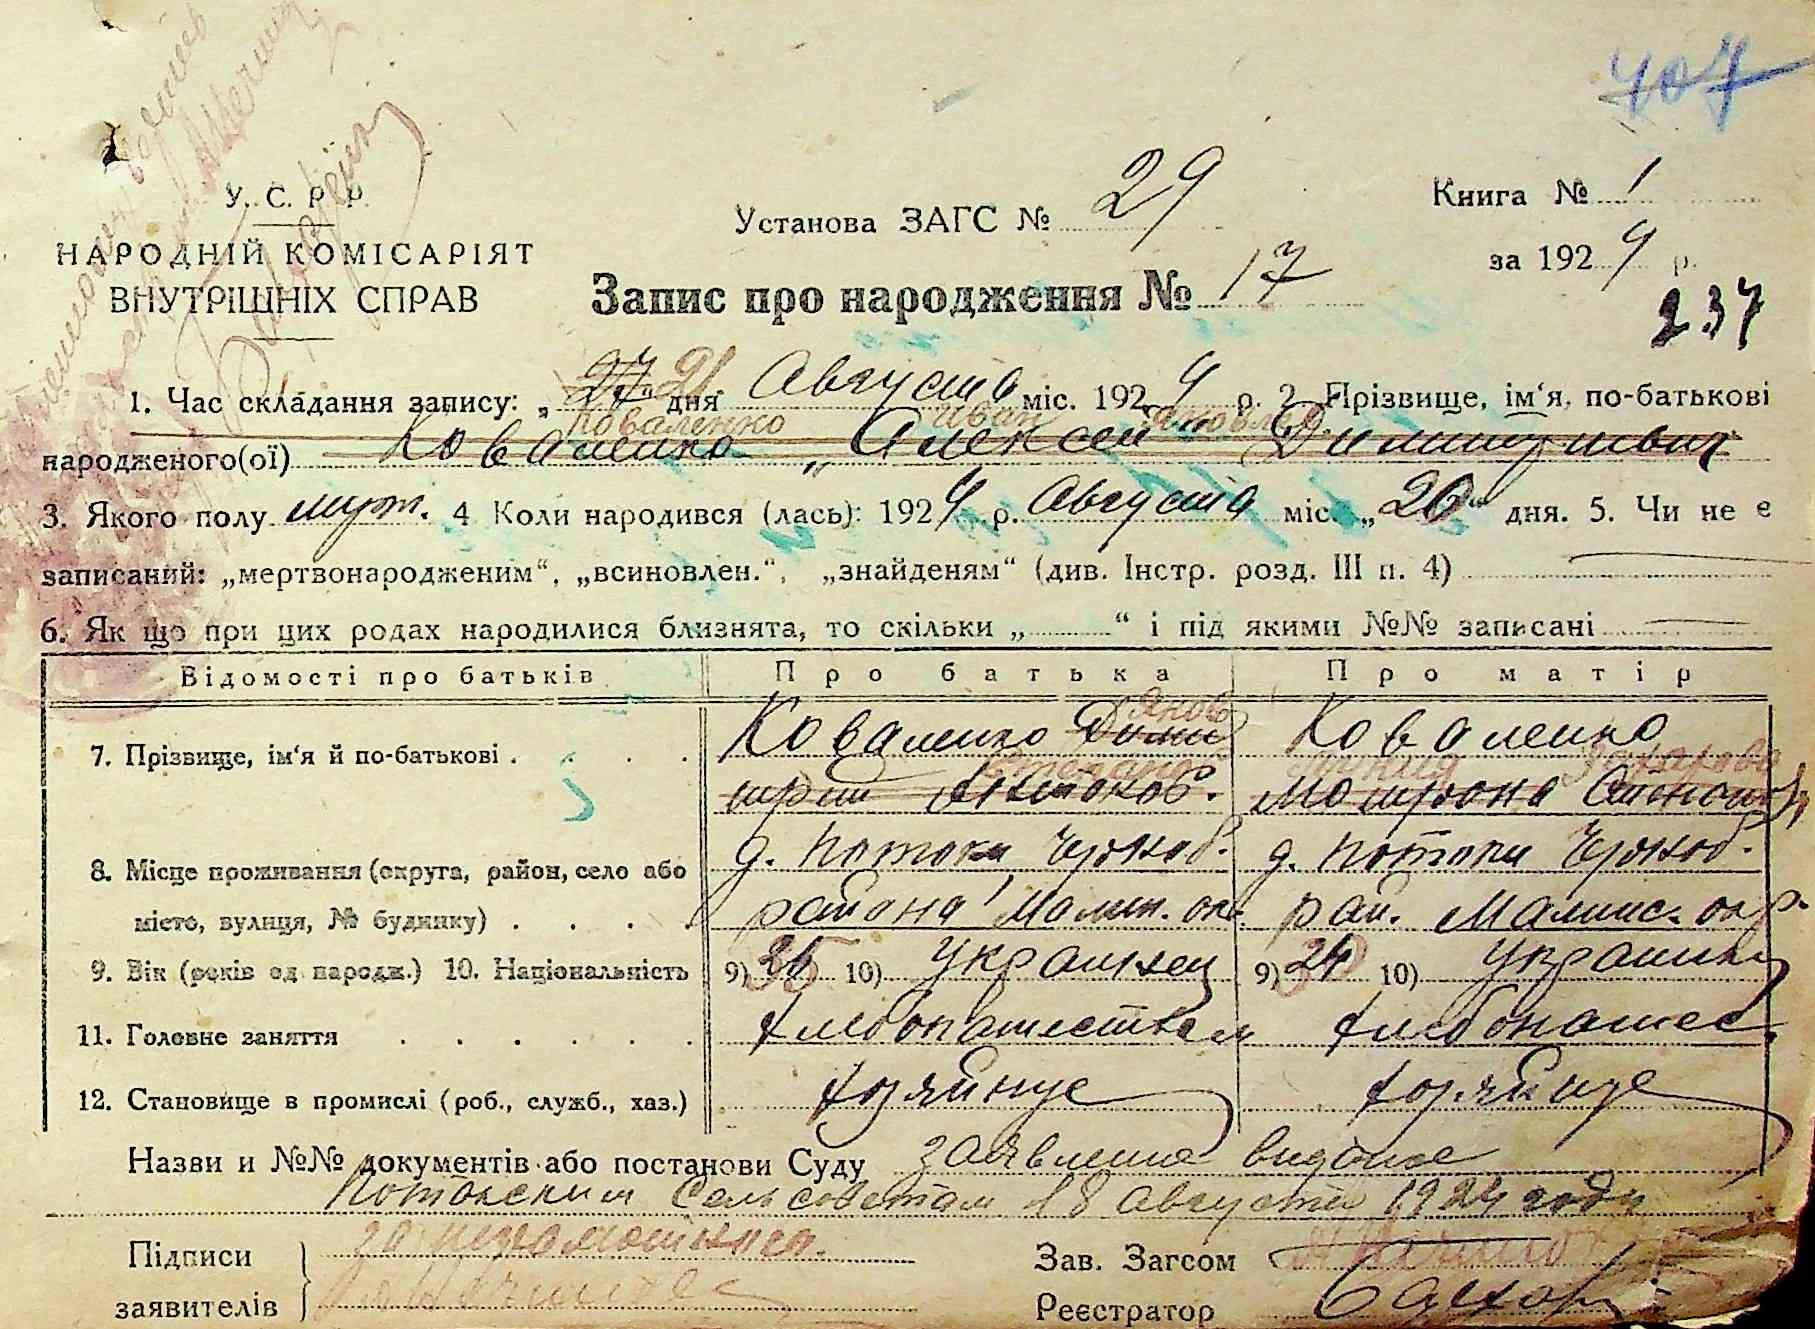 407
У. С. Р. Р.
НАРОДНІЙ КОМІСАРІЯТ
ВНУТРІШНІХ СПРАВ
Установа ЗАГС № 29
Книга № 1
за 1924 р.
Запис про народження № 17
237
1. Час складання запису: „27" 21 дня Августа міс. 1924 р. 2. Прізвище, ім'я, по-батькові
Коваленко Иван Яковл.
народженого(ої) Коваленко „Алексей Димитриевич
3. Якого полу муж. 4 Коли народився (лась): 1924 р. Августа міс. „20" дня. 5. Чи не є
записаний: „мертвонародженим", „всиновлен.", „знайденям" (див. Інстр. розд. III п. 4)
6. Як що при цих родах народилися близнята, то скільки „ " і під якими №№ записані
Відомості про батьків Про батька Про матір
7. Прізвище, ім'я й по-батькові . . . . Коваленко Дими Яков Коваленко
Степанов Захарова
трий Матрона
8. Місце проживання (округа, район, село або д. Потоки Черноб. д. Потоки Черноб.
місто, вулиця, № будинку) . . . . района Малин. ок. рай. Малинс. окр.
9. Вік (років од народж.) 10. Національність 9) 35 10) Украинец 9) 24 30 10) Украинка
11. Головне заняття . . . . . . Хлебопашеством Хлебопашес.
12. Становище в промислі (роб., служб., хаз.) Хозяйнує Хозяйнує
Назви и №№ документів або постанови Суду заявление видане
Потокским Сельсоветам 18 Августа 1924 года
Підписи
заявителів
за неграмотного
Зав. Загсом
Реєстратор